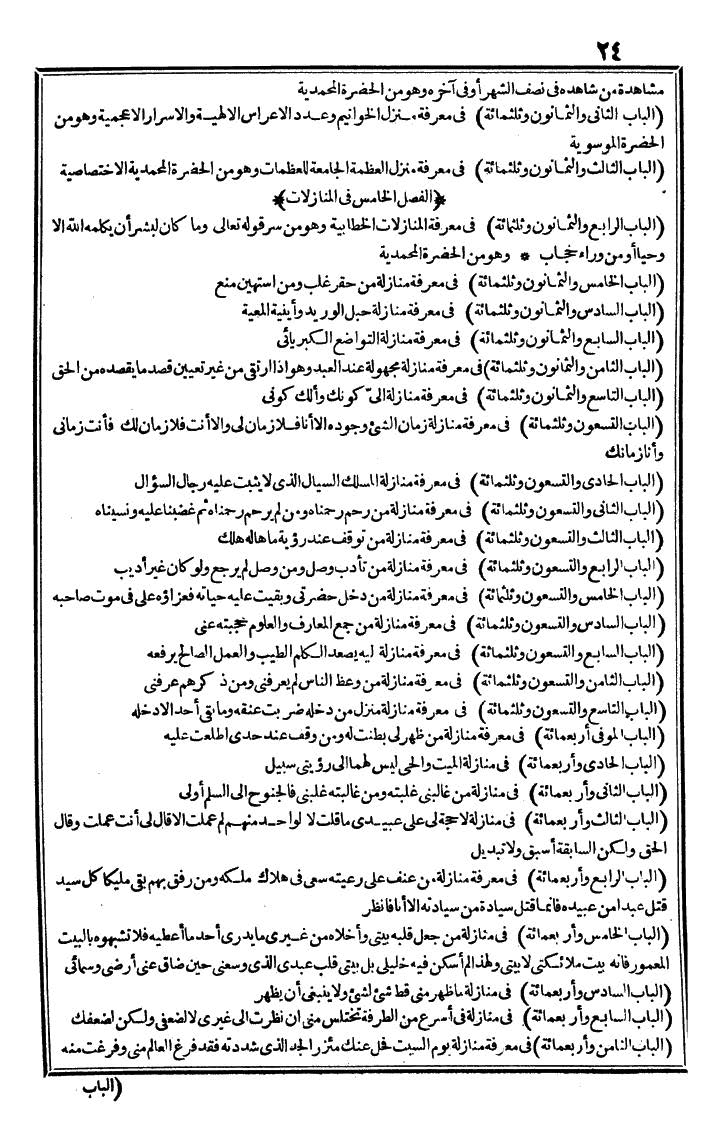 ٢٤
مشاهدة من شاهده فى نصف الشهر أو فى آخره وهو من الحضرة المحمدية
(الباب الثانى والثمانون وثلثمائة) فى معرفة منزل الخواتيم وعدد الاعراس الالهية والاسرار الاعجمية وهو من
الحضرة الموسوية
(الباب الثالث والثمانون وثلثمائة) فى معرفة منزل العظمة الجامعة للعظمات وهو من الحضرة المحمدية الاختصاصية
﴿الفصل الخامس فى المنازلات﴾
(الباب الرابع والثمانون وثلثمائة) فى معرفة المنازلات الخطابية وهو من سر قوله تعالى وما كان لبشر أن يكلمه الله الا
وحيا أو من وراء حجاب * وهو من الحضرة المحمدية
(الباب الخامس والثمانون وثلثمائة) فى معرفة منازلة من حقر غلب ومن استهين منع
(الباب السادس والثمانون وثلثمائة) فى معرفة منازلة حبل الوريد وأينية المعية
(الباب السابع والثمانون وثلثمائة) فى معرفة منازلة التواضع الكبريائى
(الباب الثامن والثمانون وثلثمائة) فى معرفة منازلة مجهولة عند العبد وهو اذا ارتقى من غير تعيين قصد ما يقصده من الحق
(الباب التاسع والثمانون وثلثمائة) فى معرفة منازلة الىّ كونك وألك كونى
(الباب التسعون وثلثمائة) فى معرفة منازلة زمان الشئ وجوده الا أنا فلا زمان لى والا أنت فلا زمان لك فأنت زمانى
وأنا زمانك
(الباب الحادى والتسعون وثلثمائة) فى معرفة منازلة المسلك السيال الذى لا يثبت عليه رجال السؤال
(الباب الثانى والتسعون وثلثمائة) فى معرفة منازلة من رحم رحمناه ومن لم يرحم رحمناه ثم غضبنا عليه ونسيناه
(الباب الثالث والتسعون وثلثمائة) فى معرفة منازلة من توقف عند رؤية ما هاله هلك
(الباب الرابع والتسعون وثلثمائة) فى معرفة منازلة من تأدب وصل ومن وصل لم يرجع ولو كان غير أديب
(الباب الخامس والتسعون وثلثمائة) فى معرفة منازلة من دخل حضرتى وبقيت عليه حياته فعزاؤه على فى موت صاحبه
(الباب السادس والتسعون وثلثمائة) فى معرفة منازلة من جمع المعارف والعلوم حجبته عنى
(الباب السابع والتسعون وثلثمائة) فى معرفة منازلة ليه يصعد الكلم الطيب والعمل الصالح يرفعه
(الباب الثامن والتسعون وثلثمائة) فى معرفة منازلة من وعظ الناس لم يعرفنى ومن ذكرهم عرفنى
(الباب التاسع والتسعون وثلثمائة) فى معرفة منازلة منزل من دخله ضربت عنقه وما بقى أحد الا دخله
(الباب الموفى أربعمائة) فى معرفة منازلة من ظهر لى بطنت له ومن وقف عند حدى اطلعت عليه
(الباب الحادى وأربعمائة) فى منازلة الميت والحى ليس لهما الى رؤيتى سبيل
(الباب الثانى وأربعمائة) فى منازلة من غالبنى غلبته ومن غالبته غلبنى فالجنوح الى السلم أولى
(الباب الثالث وأربعمائة) فى منازلة لا حجة لى على عبيدى ما قلت لا لواحد منهم لم عملت الا قال لى أنت عملت وقال
الحق ولكن السابقة أسبق ولا تبديل
(الباب الرابع وأربعمائة) فى معرفة منازلة من عنف على رعيته سعى فى هلاك ملكه ومن رفق بهم بقى مليكا كل سيد
قتل عبدا من عبيده فانما قتل سيادة من سيادته الا أنا فانظر
(الباب الخامس وأربعمائة) فى منازلة من جعل قلبه بيتى وأخلاه من غيرى ما يدرى أحد ما أعطيه فلا تشبهوه بالبيت
المعمور فانه بيت ملائكتى لا بيتى ولهذا لم أسكن فيه خليلى بل بيتى قلب عبدى الذى وسعنى حين ضاق عنى أرضى وسمائى
(الباب السادس وأربعمائة) فى منازلة ما ظهر منى قط شئ لشئ ولا ينبغى أن يظهر
(الباب السابع وأربعمائة) فى منازلة فى أسرع من الطرفة تختلس منى ان نظرت الى غيرى لا لضعفى ولكن لضعفك
(الباب الثامن وأربعمائة) فى معرفة منازلة يوم السبت فحل عنك مئزر الجد الذى شددته فقد فرغ العالم منى وفرغت منه
(الباب